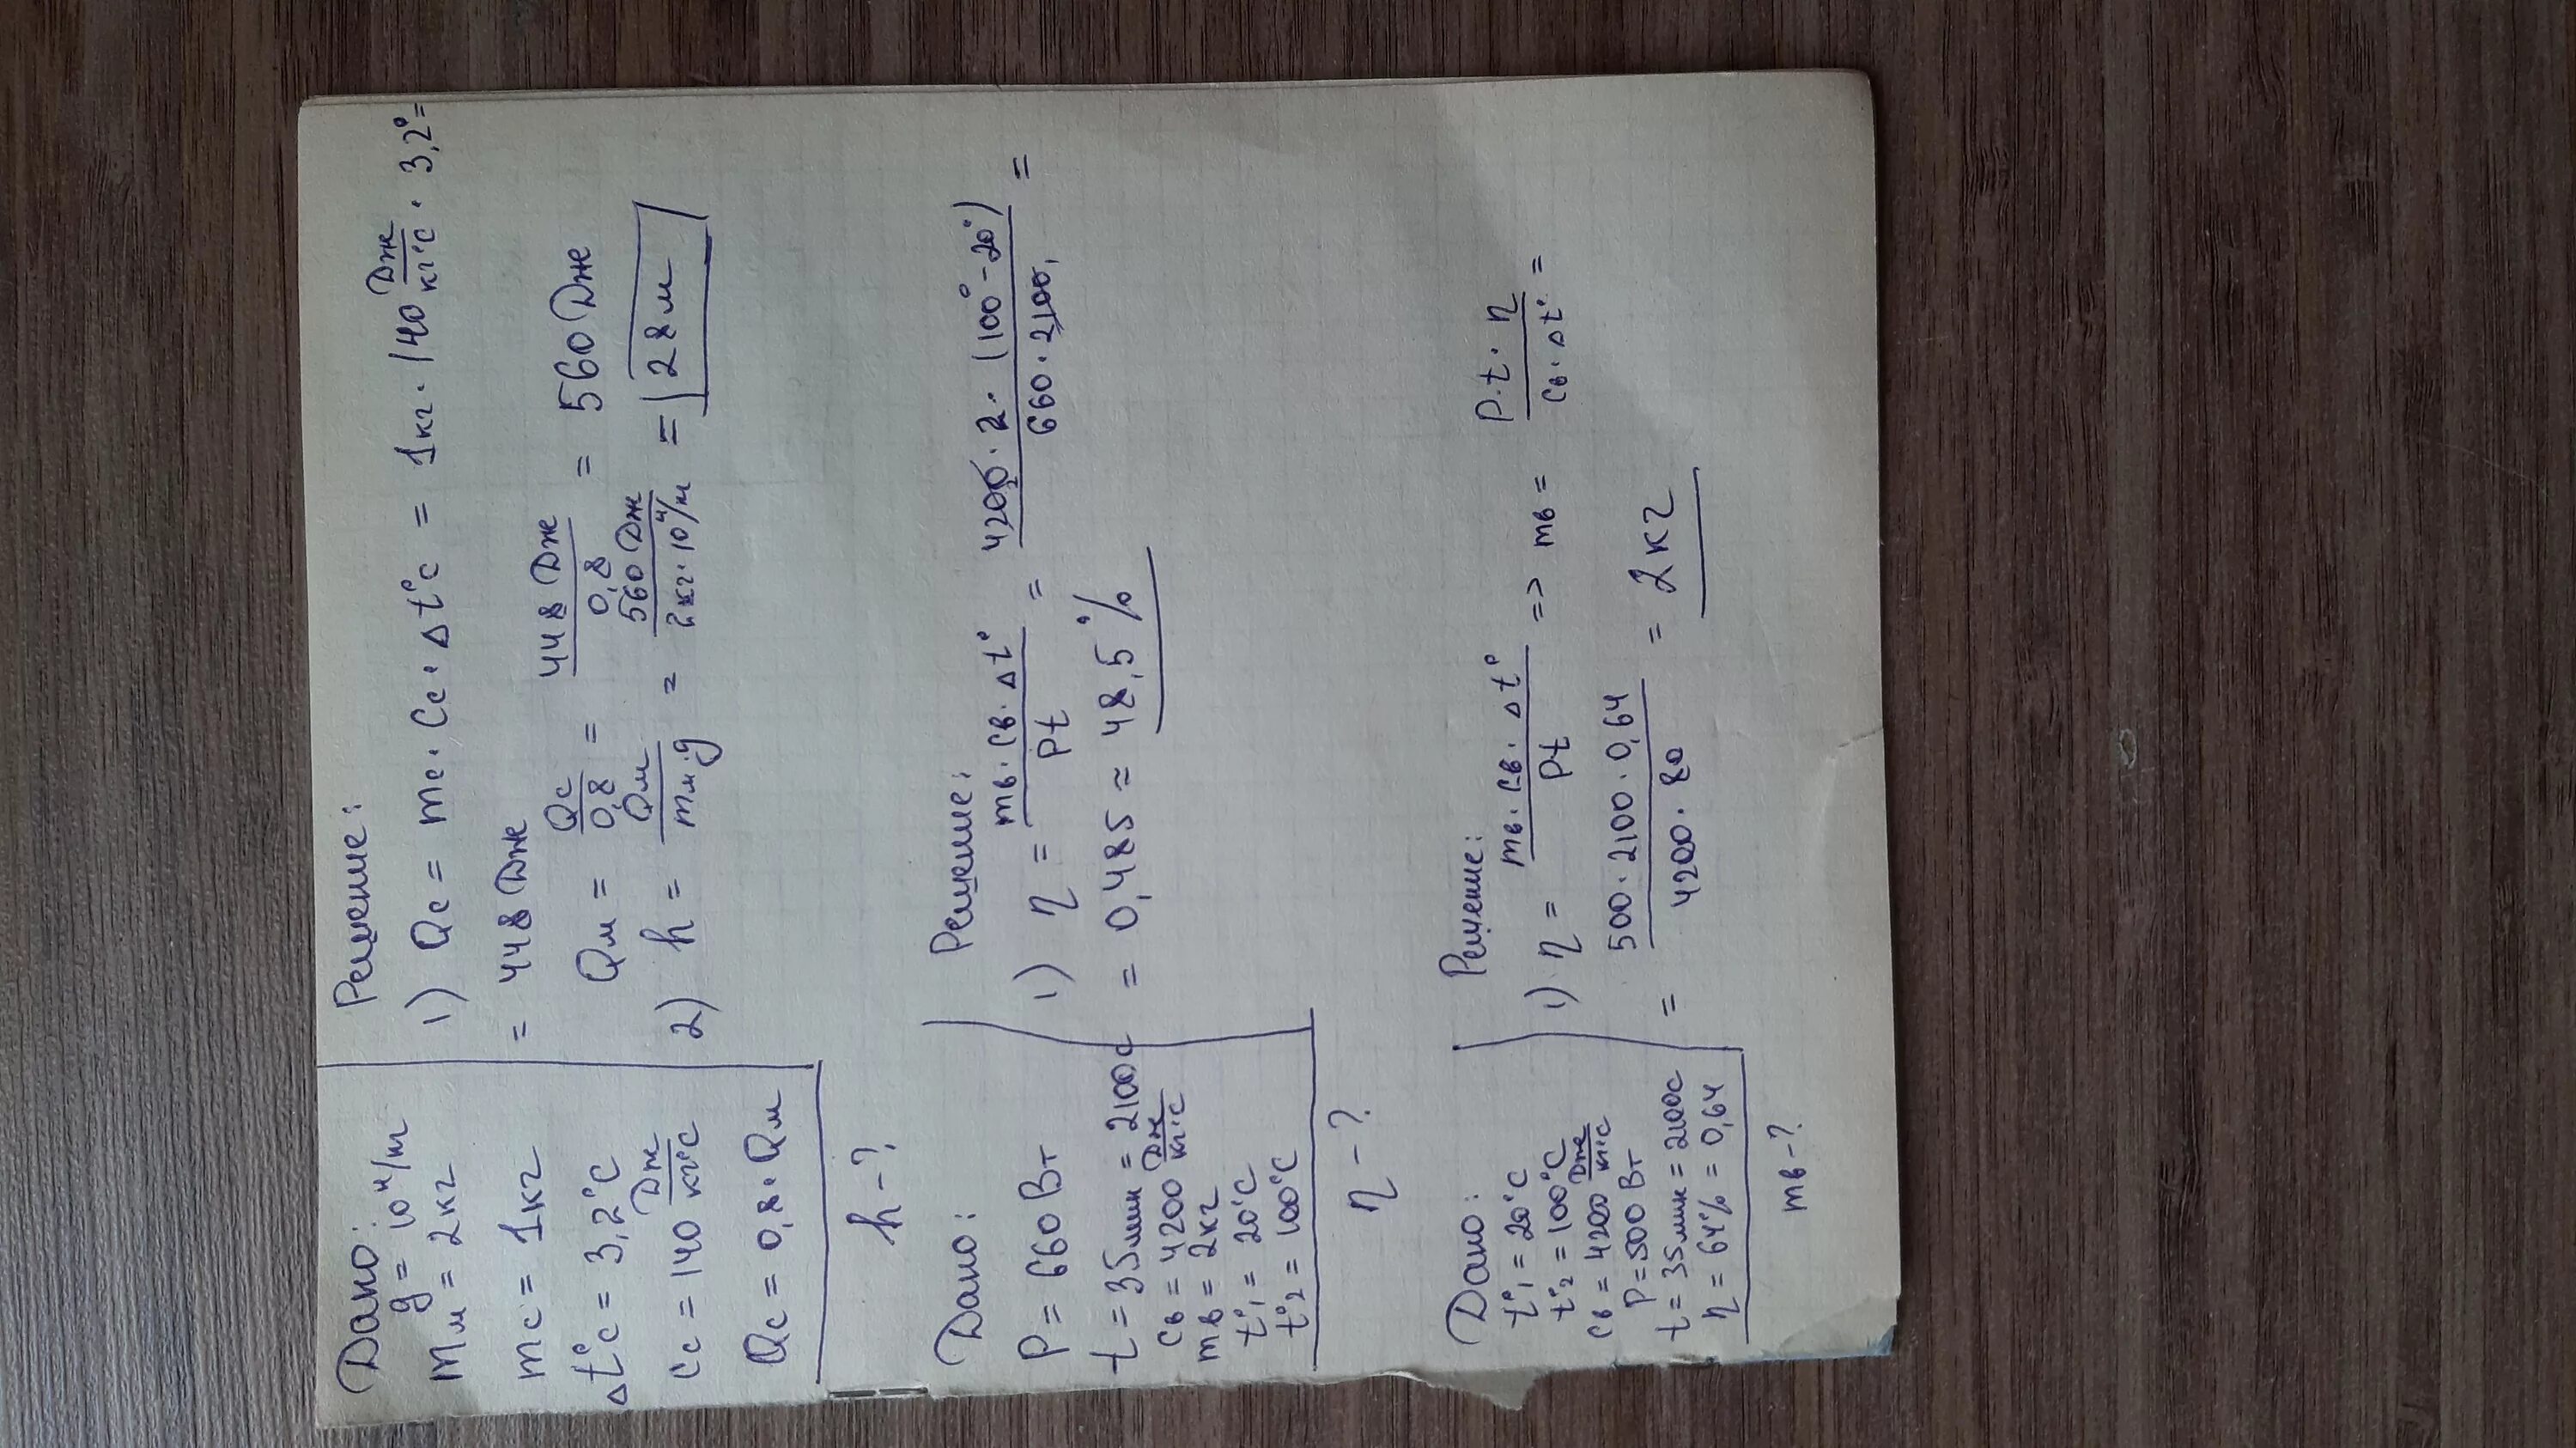 Дано:
g = 10 н/кг
mм = 2кг
mс = 1кг
Δt°с = 3,2°С
cс = 140 Дж/кг°С
Qс = 0,8 · Qм
h – ?
Решение:
1) Qс = mс · Cс · Δt°с = 1кг · 140 Дж/кг°С · 3,2° =
= 448 Дж
Qм = Qс/0,8 = 448 Дж/0,8 = 560 Дж
2) h = Qм/mм·g = 560 Дж/2кг·10 н/кг = 28 м
Дано:
P = 660 Вт
t = 35 мин = 2100с
cв = 4200 Дж/кг°С
mв = 2кг
t°1 = 20°С
t°2 = 100°С
η – ?
Решение:
1) η = mв · cв · Δt°/Pt = 4200 · 2 · (100° – 20°)/660 · 2100 =
= 0,485 ≈ 48,5 %
Дано:
t°1 = 20°С
t°2 = 100°С
cв = 4200 Дж/кг°С
P = 500 Вт
t = 35мин = 2100с
η = 64% = 0,64
mв – ?
Решение:
1) η = mв · cв · Δt°/Pt => mв = P · t · η/cв · Δt° =
= 500 · 2100 · 0,64/4200 · 80 = 2кг